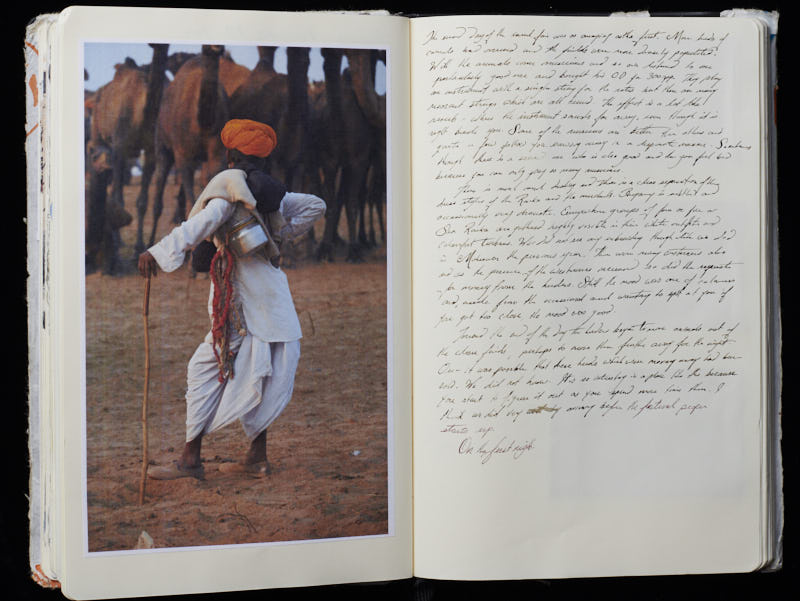 The second day of the camel fair was as amazing as the first. More herds of
camels had arrived and the fields were more densely populated.
With the animals come musicians and so we listened to one
particularly good one and bought his CD for 300 rps. They play
an instrument with a single string for the notes but there are many
resonant strings which are all tuned. The effect is a lot like
reverb - where the instrument sounds far away, even though it is
right beside you. Some of the musicians are better than others and
quite a few follow you around in a desperate manner. Sometimes
though there is a second one who is also good and then you feel bad
because you can only pay so many musicians.
There is much camel trading and there is a clear separation of the
dress styles of the Raika and the merchants. Bargaining is subtle and
occasionally very dramatic. groups of four or five
Raika are gathered together visible in their white outfits and
colorful turbans. We did not see any though this was
in the previous year. There were many
as the presence of the westerners increased so did the requests
for money from the herders. Still the mood was one of calmness
and, aside from the occasional camel wanting to spit at you if
you got too close the mood was good.
Toward the end of the day the herders began to move animals out of
the close fields, perhaps to move them further away for the night
Or it was possible that these herds which were moving away had been
sold. We did not know. It is so interesting in a place like this because
you start to figure it out as you spend more time there. I
think we did by arriving before the festival proper
starts up.
On the first night